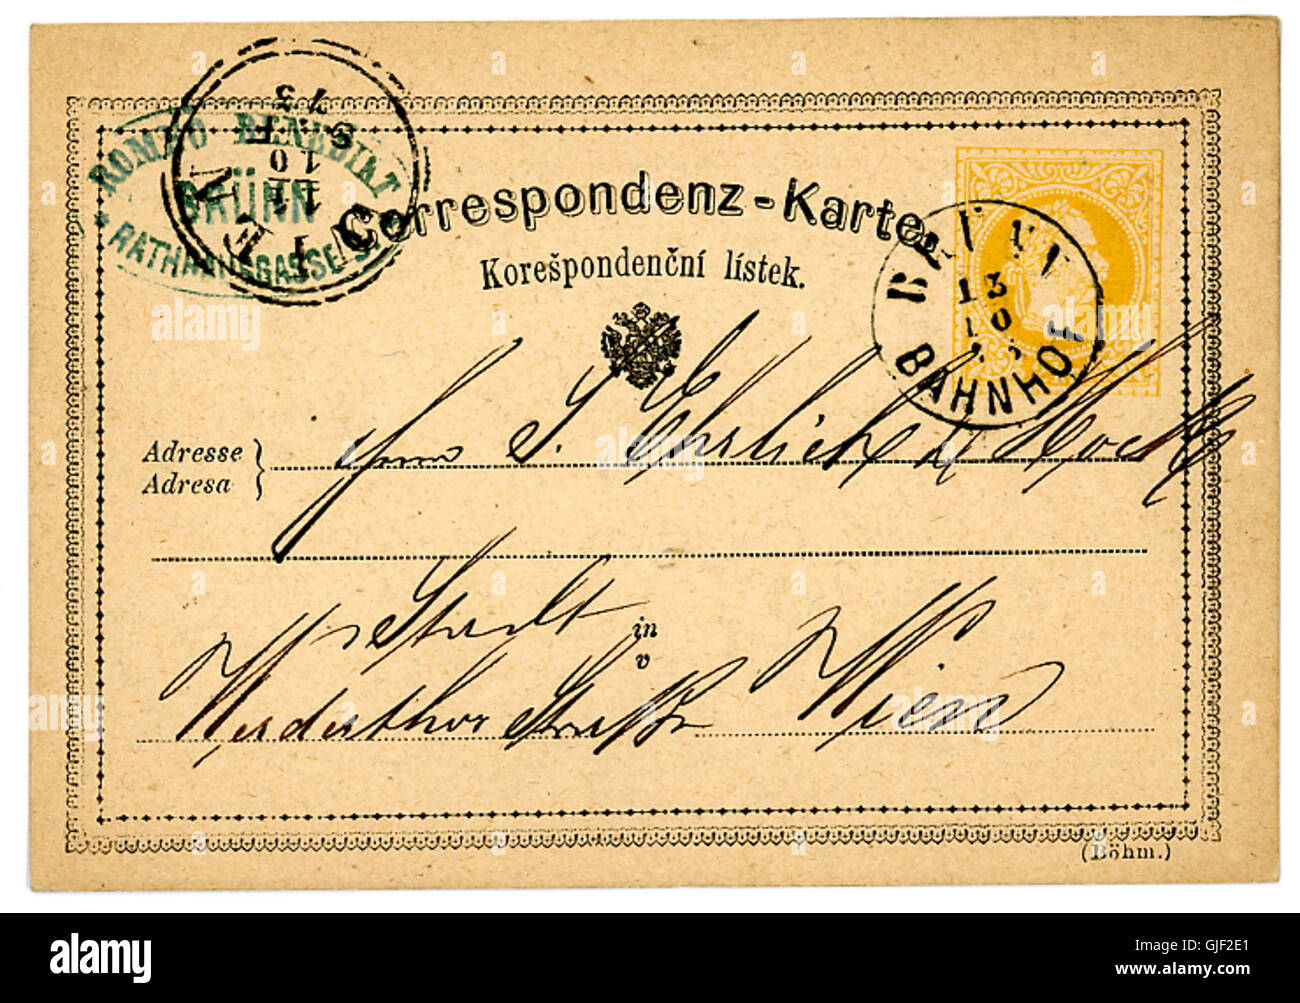 ROMEO BENEDIKT
BRÜNN
RATHHAUSGASSE
WIEN
11
10
73
Correspondenz-Karte.
Korešpondenční lístek.
BRÜNN
13
10
BAHNHOF
Adresse
Adresa
S. Ehrlich &
Stadt
in
v
Werderthor Straße Wien
(Böhm.)
alamy
Image ID: GJF2E1
www.alamy.com